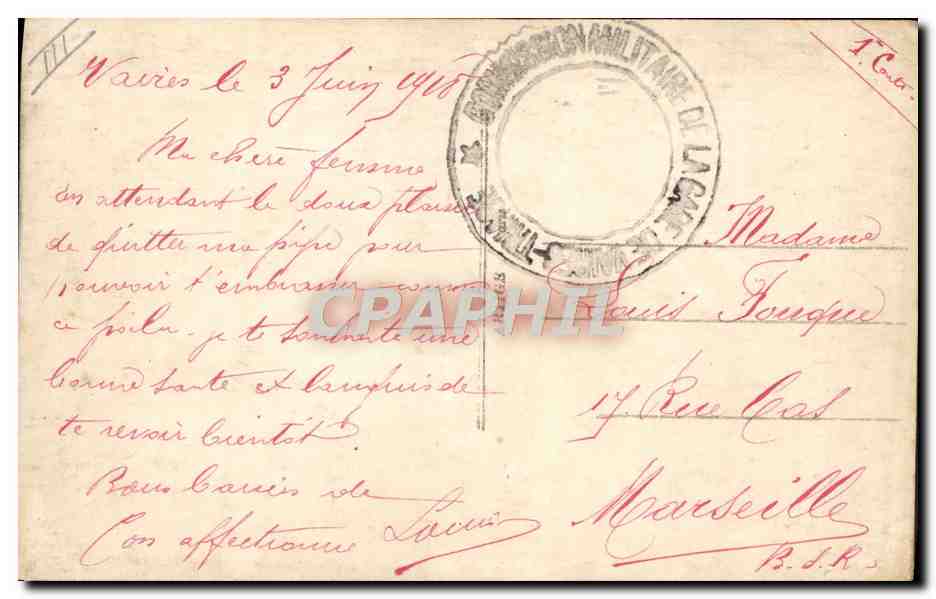 III
1e Carte
Vaires le 3 Juin 1918
COMMISSION MILITAIRE DE LA GARE DE VAIRES-TORCY
Ma chère femme
en attendant le doux plaisir
de quitter ma pipe pour
pouvoir t'embrasser comme
ce poilu je te souhaite une
bonne santé et languis de
te revoir bientôt.
Bons baisers de
ton affectionné Louis
Madame
Louis Fouque
17, Rue Cas
Marseille
B.d.R.
CPAPHIL